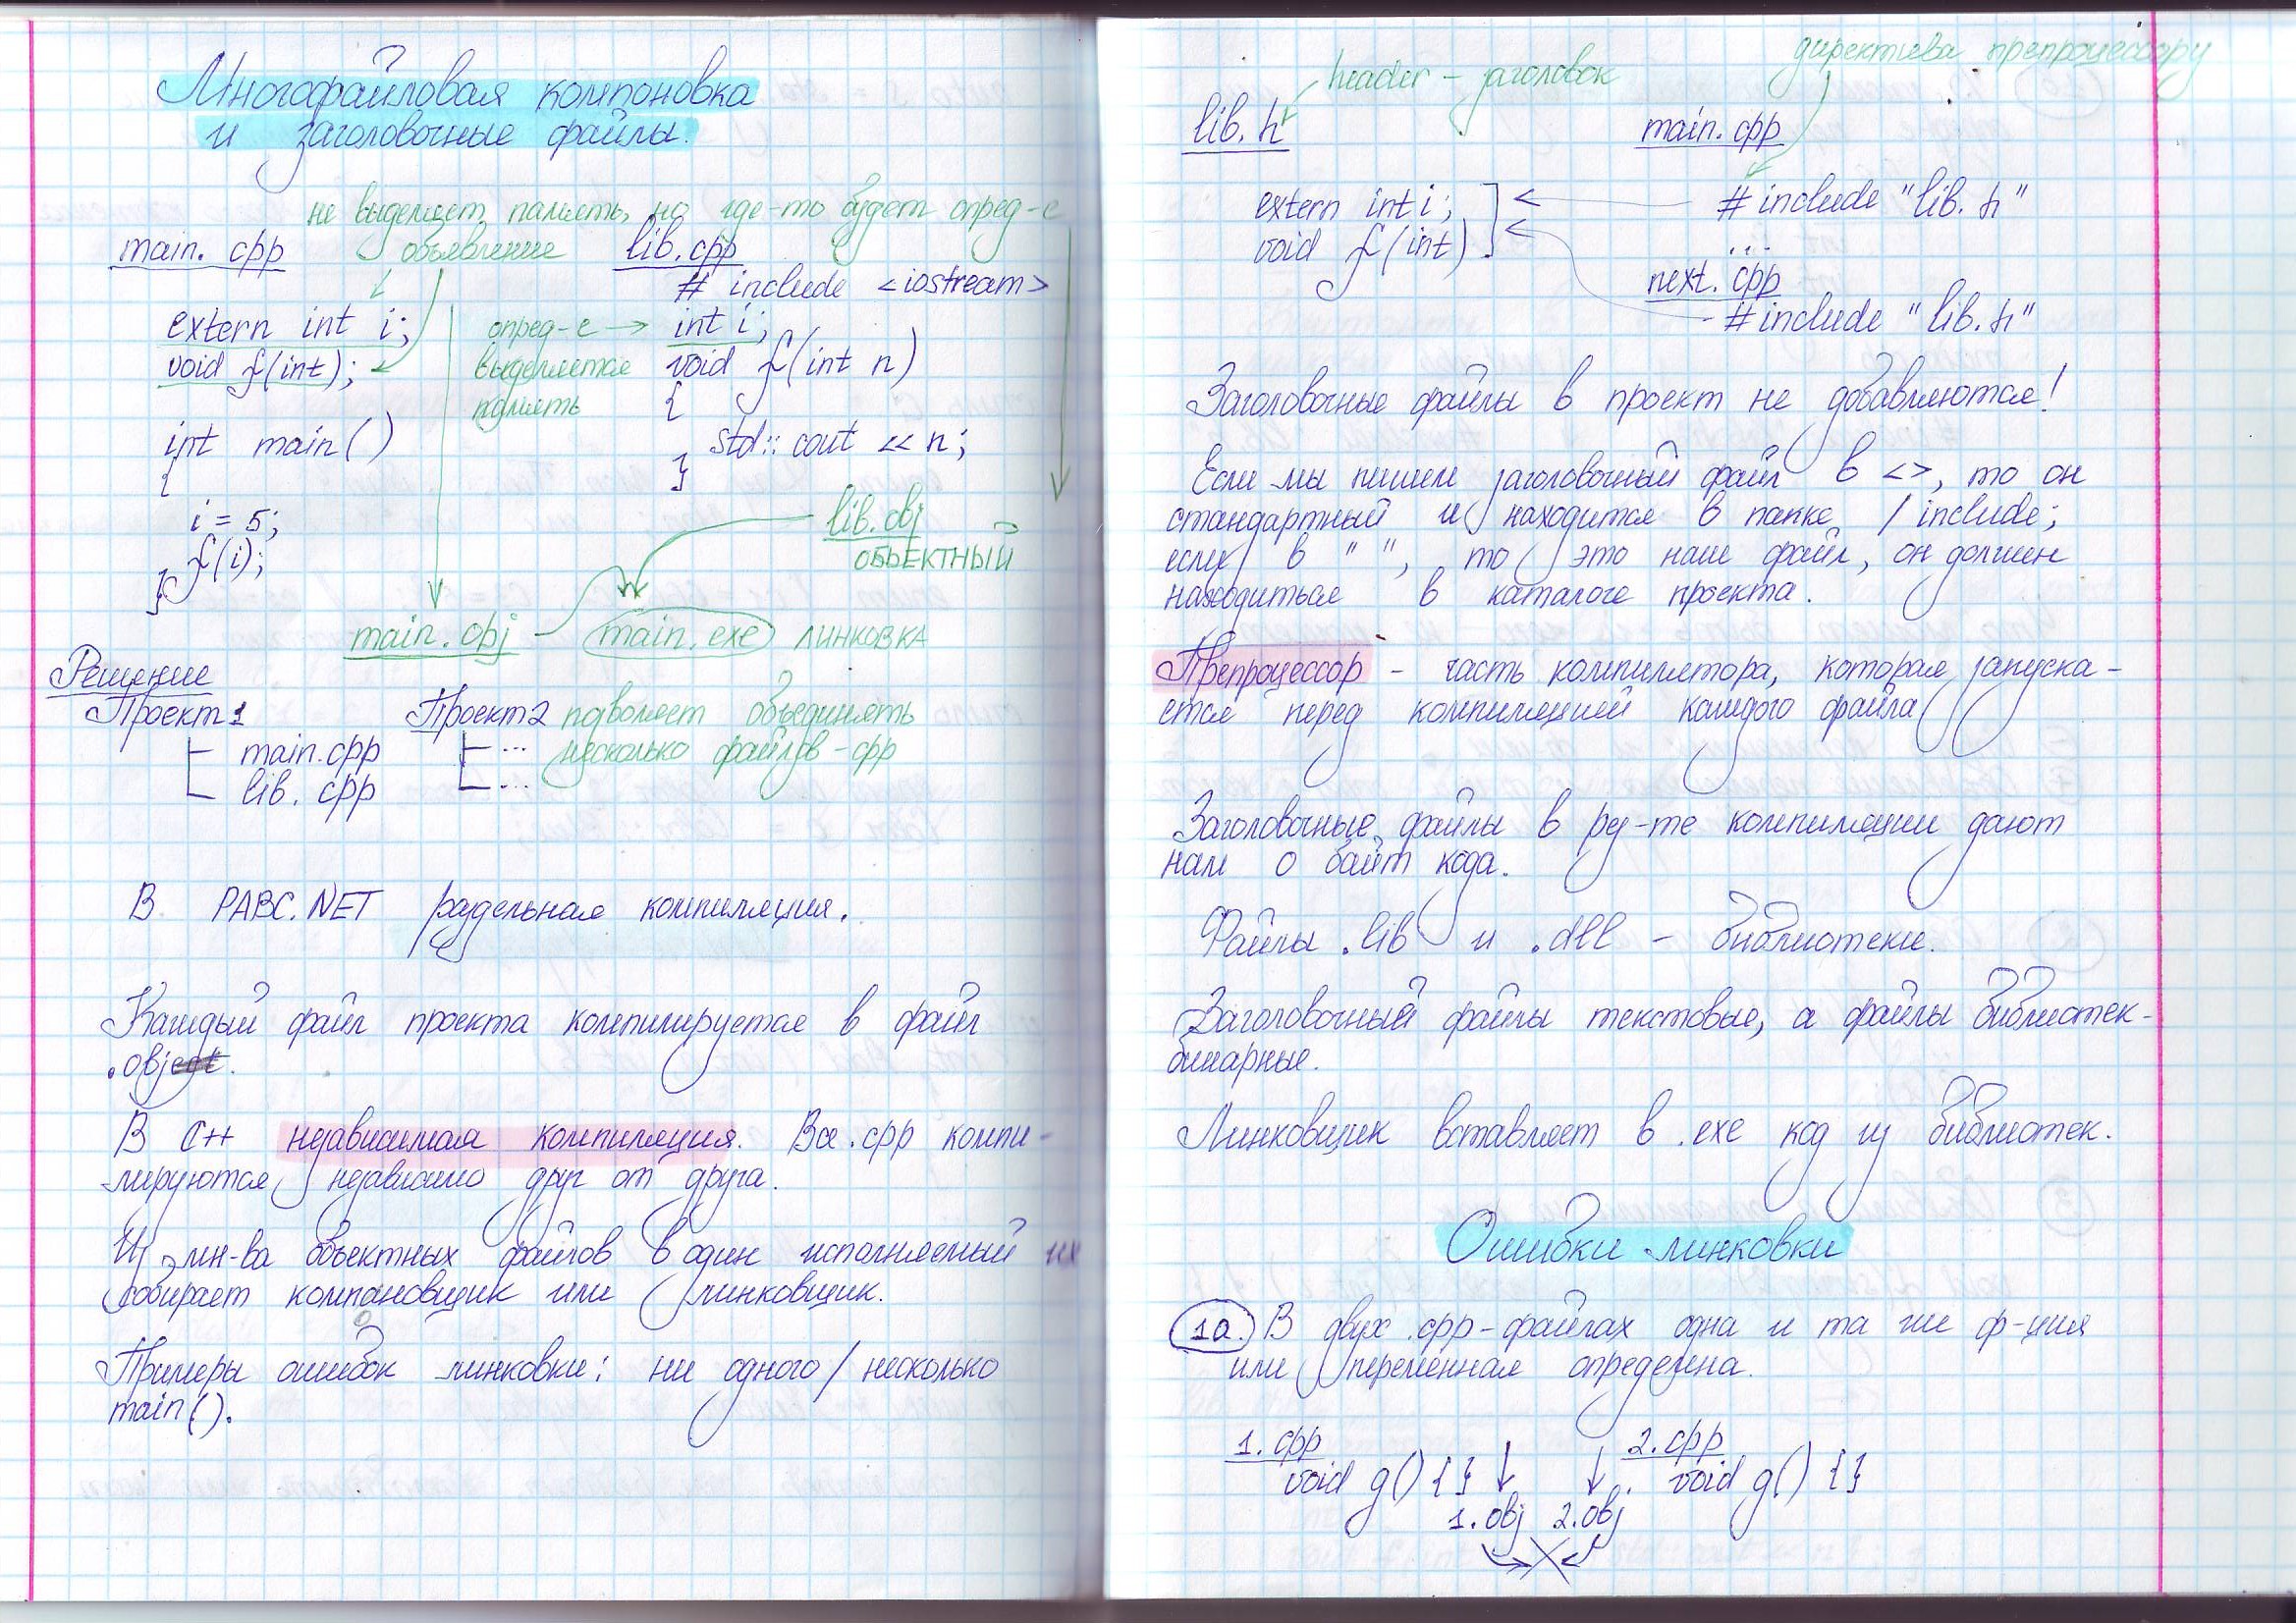 Многофайловая компоновка
и заголовочные файлы.
не выделяет память, но где-то будет опред-е
main.cpp объявление lib.cpp
# include <iostream>
extern int i; опред-е → int i;
void f(int); выделяется void f(int n)
память {
int main() std::cout << n;
{ }
i = 5; lib.obj
f(i); ОБЪЕКТНЫЙ
}
main.obj main.exe ЛИНКОВКА
Решение
Проект1 Проект2 позволяет объединять
main.cpp ... несколько файлов-cpp
lib.cpp ...
В PABC.NET раздельная компиляция.
Каждый файл проекта компилируется в файл
.obj.
В C++ независимая компиляция. Все .cpp компи-
лируются независимо друг от друга.
Из мн-ва объектных файлов в один исполняемый их
собирает компоновщик или линковщик.
Примеры ошибок линковки: ни одного / несколько
main().
директива препроцессору
header - заголовок
lib.h main.cpp
extern int i; #include "lib.h"
void f(int) ...
next.cpp
#include "lib.h"
Заголовочные файлы в проект не добавляются!
Если мы пишем заголовочный файл в <>, то он
стандартный и находится в папке /include;
если в " ", то это наш файл, он должен
находиться в каталоге проекта.
Препроцессор - часть компилятора, которая запуска-
ется перед компиляцией каждого файла
Заголовочные файлы в рез-те компиляции дают
нам 0 байт кода.
Файлы .lib и .dll - библиотеки.
Заголовочный файлы текстовые, а файлы библиотек -
бинарные.
Линковщик вставляет в .exe код из библиотек.
Ошибки линковки
1а. В двух .cpp-файлах одна и та же ф-ция
или переменная определена.
1.cpp 2.cpp
void g() {} void g() {}
1.obj 2.obj